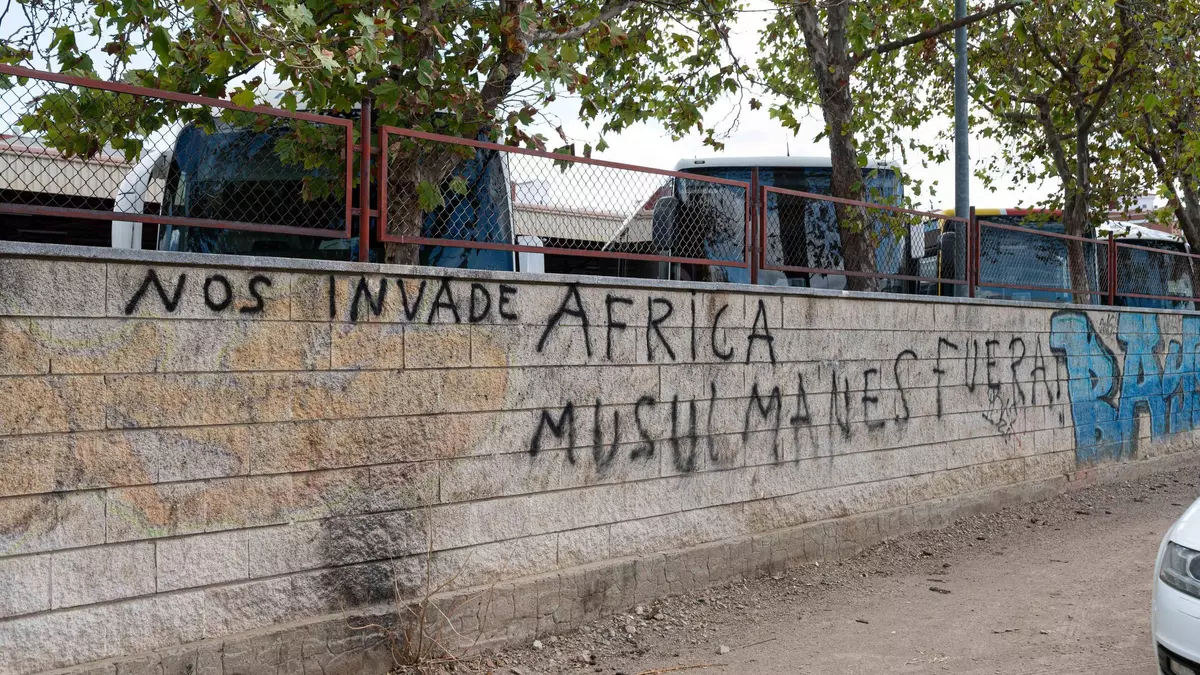 NOS INVADE AFRICA
MUSULMANES FUERA